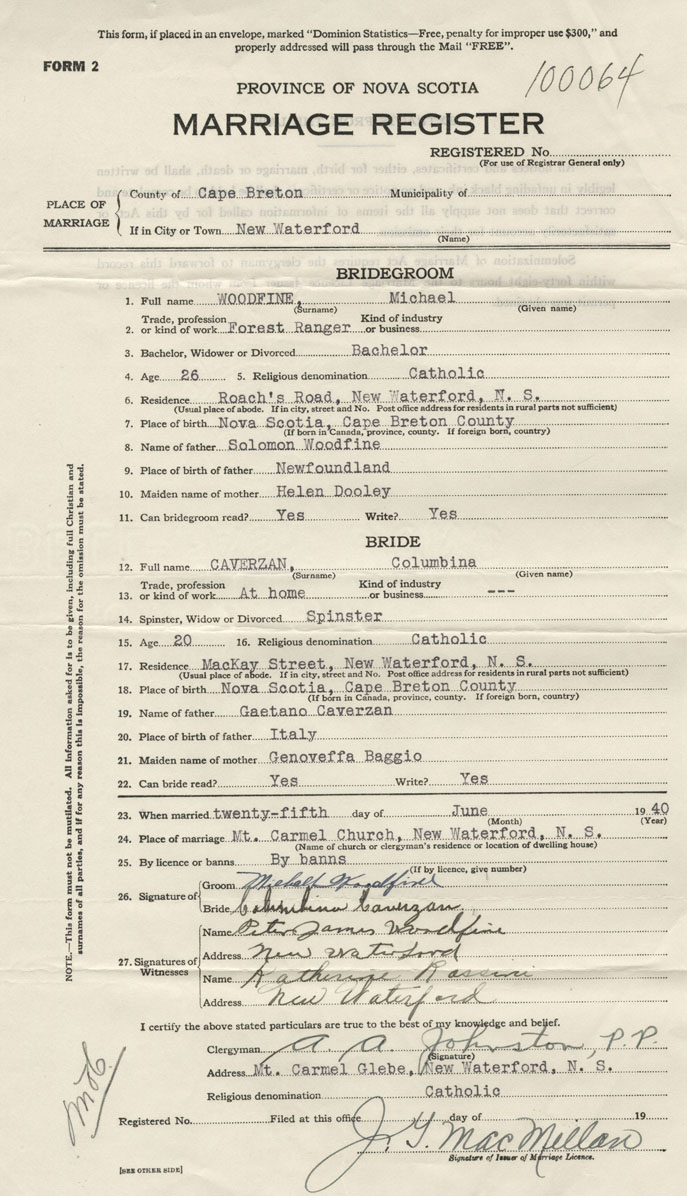 This form, if placed in an envelope, marked "Dominion Statistics—Free, penalty for improper use $300," and
properly addressed will pass through the Mail "FREE".
FORM 2
100064
PROVINCE OF NOVA SCOTIA
MARRIAGE REGISTER
REGISTERED No.
(For use of Registrar General only)
PLACE OF MARRIAGE
County of Cape Breton Municipality of
If in City or Town New Waterford
(Name)
BRIDEGROOM
1. Full name WOODFINE, Michael
(Surname) (Given name)
Trade, profession Kind of industry
2. or kind of work Forest Ranger or business
3. Bachelor, Widower or Divorced Bachelor
4. Age 26 5. Religious denomination Catholic
6. Residence Roach's Road, New Waterford, N. S.
(Usual place of abode. If in city, street and No. Post office address for residents in rural parts not sufficient)
7. Place of birth Nova Scotia, Cape Breton County
(If born in Canada, province, county. If foreign born, country)
8. Name of father Solomon Woodfine
9. Place of birth of father Newfoundland
10. Maiden name of mother Helen Dooley
11. Can bridegroom read? Yes Write? Yes
BRIDE
12. Full name CAVERZAN, Columbina
(Surname) (Given name)
Trade, profession Kind of industry
13. or kind of work At home or business ---
14. Spinster, Widow or Divorced Spinster
15. Age 20 16. Religious denomination Catholic
17. Residence MacKay Street, New Waterford, N. S.
(Usual place of abode. If in city, street and No. Post office address for residents in rural parts not sufficient)
18. Place of birth Nova Scotia, Cape Breton County
(If born in Canada, province, county. If foreign born, country)
19. Name of father Gaetano Caverzan
20. Place of birth of father Italy
21. Maiden name of mother Genoveffa Baggio
22. Can bride read? Yes Write? Yes
23. When married twenty-fifth day of June 1940
(Month) (Year)
24. Place of marriage Mt. Carmel Church, New Waterford, N. S.
(Name of church or clergyman's residence or location of dwelling house)
25. By licence or banns By banns
(If by licence, give number)
26. Signature of
Groom Michael Woodfine
Bride Columbina Caverzan
27. Signatures of Witnesses
Name Peter James Woodfine
Address New Waterford
Name Katherine Rossini
Address New Waterford
I certify the above stated particulars are true to the best of my knowledge and belief.
Clergyman A. A. Johnston, P. P.
(Signature)
Address Mt. Carmel Glebe, New Waterford, N. S.
Religious denomination Catholic
Registered No. Filed at this office day of 19
J. G. MacMillan
Signature of Issuer of Marriage Licence.
[SEE OTHER SIDE]
NOTE.—This form must not be mutilated. All information asked for is to be given, including full Christian and
surnames of all parties, and if for any reason this is impossible, the reason for the omission must be stated.